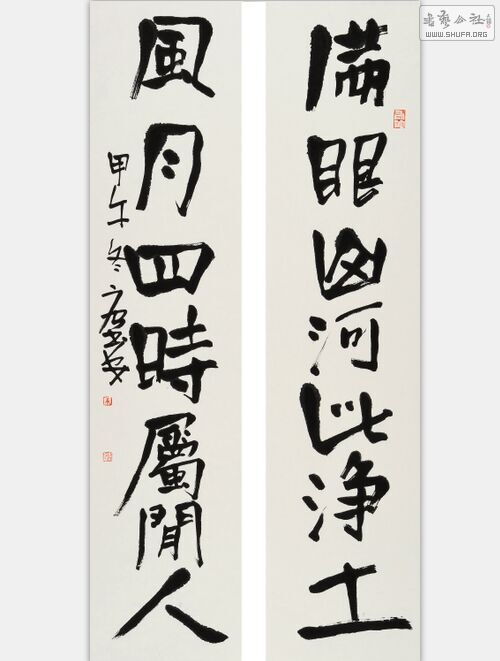 滿眼山河此淨土
風月四時屬閒人
甲午冬
書藝公社
WWW.SHUFA.ORG